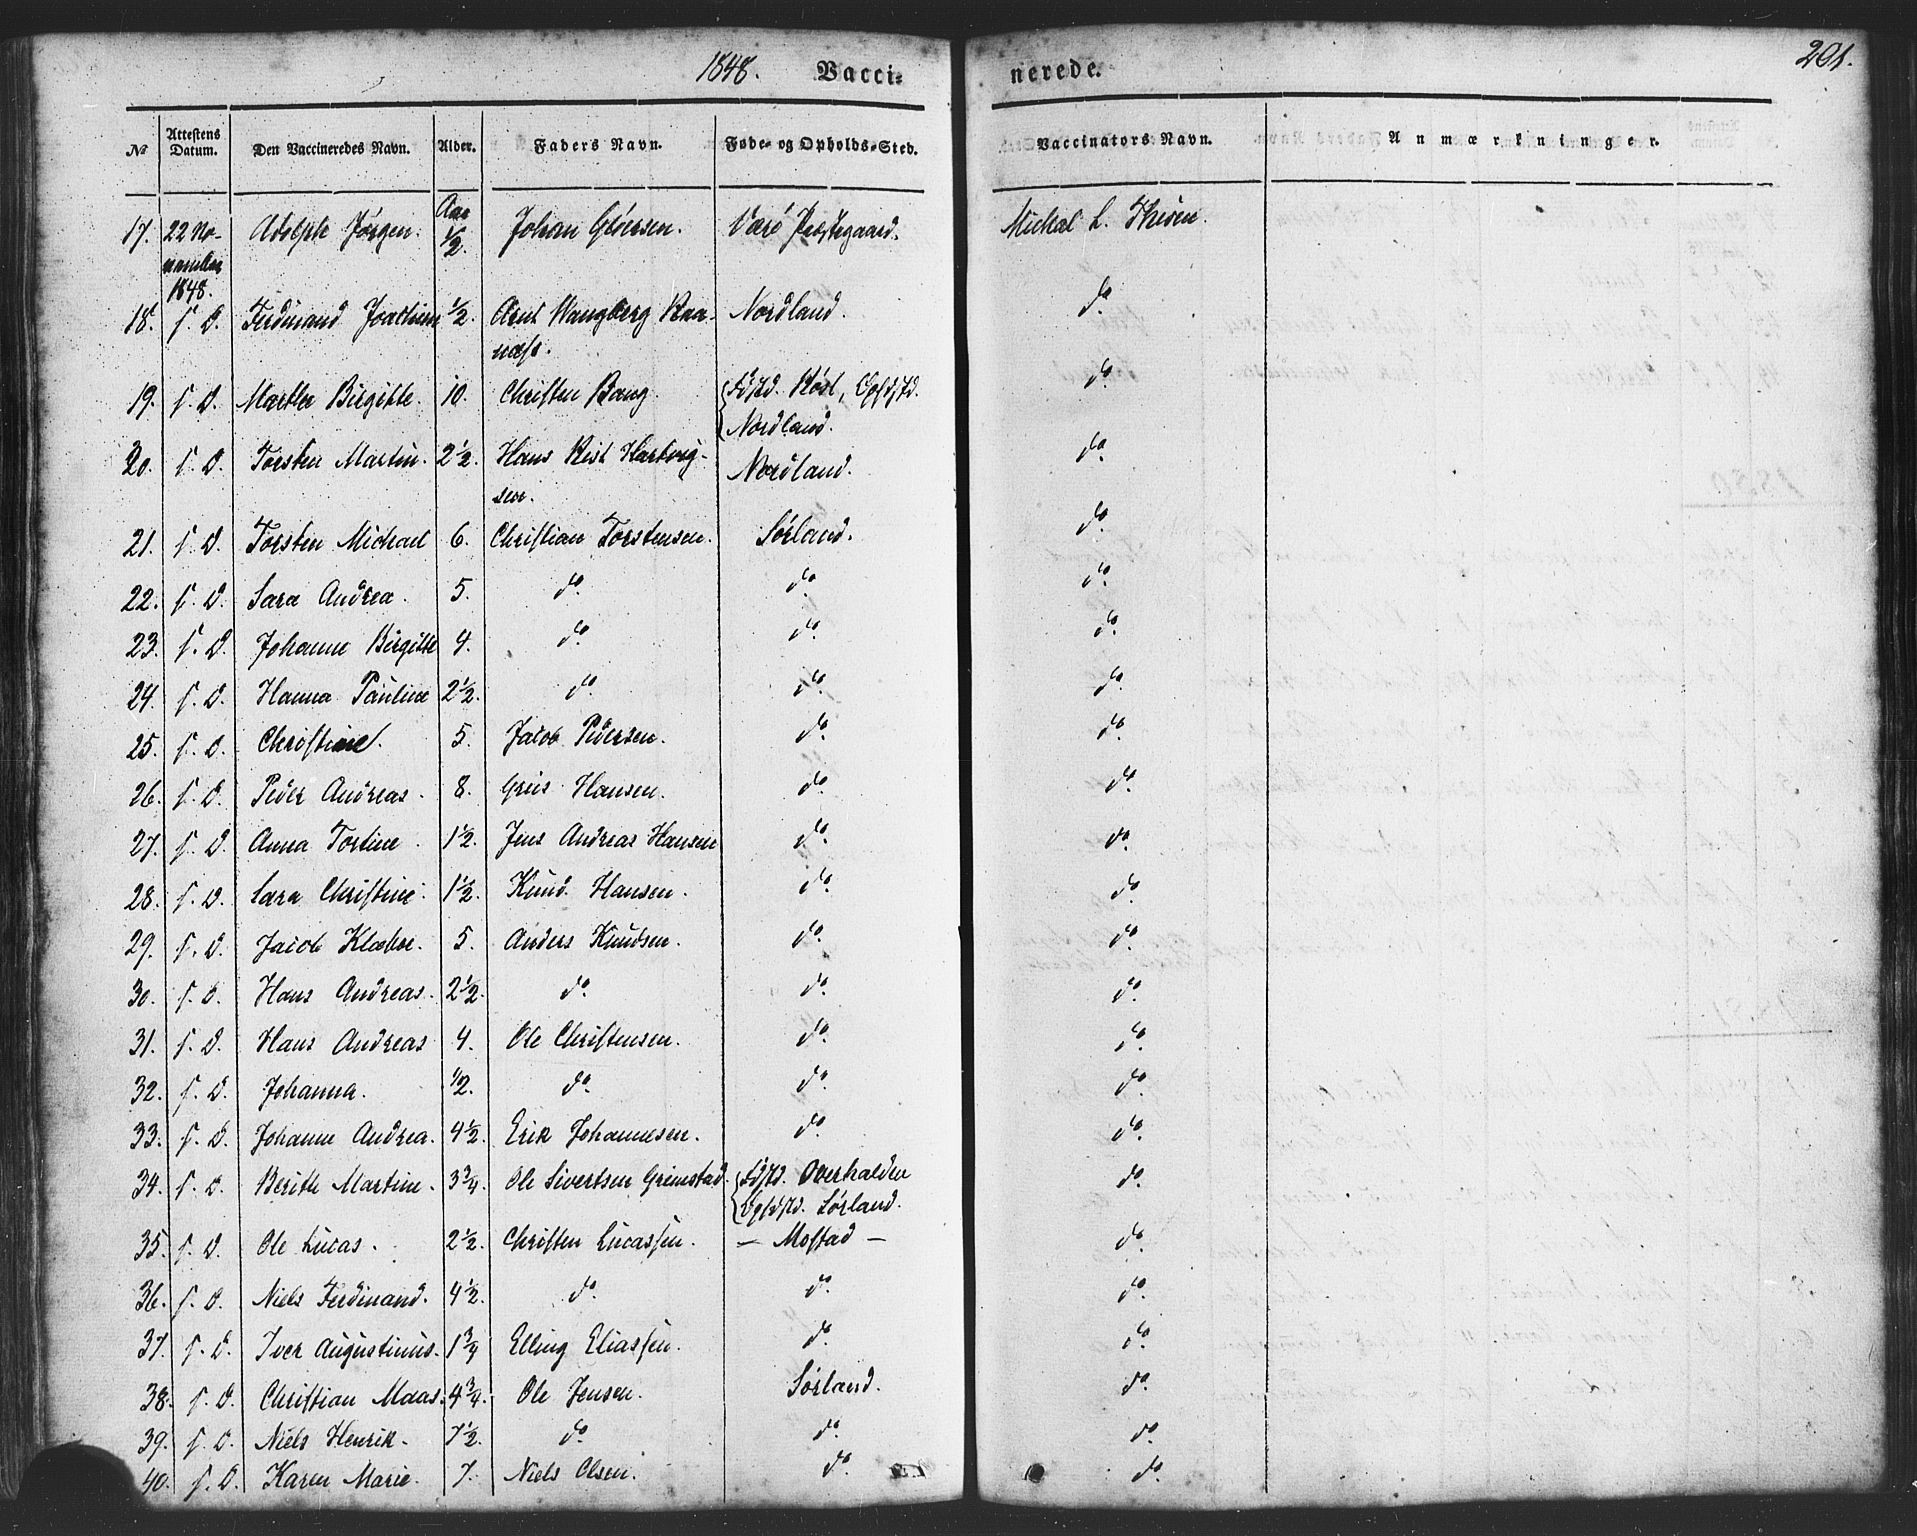 1848. Vacci- nerede. 201.
№ Attestens Datum. Den Vaccineredes Navn. Alder. Faders Navn. Føde- og Opholds-Sted. Vaccinators Navn. Anmærkninger.
17. 22 No- Adolph Jørgen. Aar 1/2. Johan Gløersen. Værø Præstegaard. Michal L. Thisen.
vember
1848.
18. s. D. Ferdinand Joachim 1/2. Arnt Wangberg Raa- Nordland. do.
næss.
19. s. D. Marthe Birgitte 10. Christen Bang. Fdstd. Røst, Ophdstd. do.
Nordland.
20. s. D. Torsten Martin. 2 1/2. Hans Rist Hartvig- Nordland. do.
sen.
21. s. D. Torsten Michael 6. Christian Torstensen. Sørland. do.
22. s. D. Sara Andrea. 5. do. do. do.
23. s. D. Johanne Birgitte 4. do. do. do.
24. s. D. Hanna Pauline 2 1/2. do. do. do.
25. s. D. Christine. 5. Jacob Pedersen. do. do.
26. s. D. Peder Andreas. 8. Greis Hansen. do. do.
27. s. D. Anna Tostine. 1 1/2. Jens Andreas Hansen do. do.
28. s. D. Sara Christine. 1 1/2. Knud Hansen. do. do.
29. s. D. Jacob Klæboe. 5. Anders Knudsen. do. do.
30. s. D. Hans Andreas. 2 1/2. do. do. do.
31. s. D. Hans Andreas 4. Ole Christensen. do. do.
32. s. D. Johanna. 1/2. do. do. do.
33. s. D. Johanne Andrea. 4 1/2. Erik Johannesen. do. do.
34. s. D. Berith Martine. 3 3/4. Ole Sivertsen Grimstad. Fdstd. Overhalden do.
Ophdstd. Sørland.
35. s. D. Ole Lucas. 2 1/2. Christen Lucassen. — Mostad — do.
36. s. D. Niels Ferdinand. 4 1/2. do. do. do.
37. s. D. Iver Augustinus. 1 3/4 Elling Eliassen. do. do.
38. s. D. Christian Maas. 4 3/4. Ole Jensen. Sørland. do.
39. s. D. Niels Henrik. 7 1/2. do. do. do.
40. s. D. Karen Marie. 7. Niels Olsen. do. do.